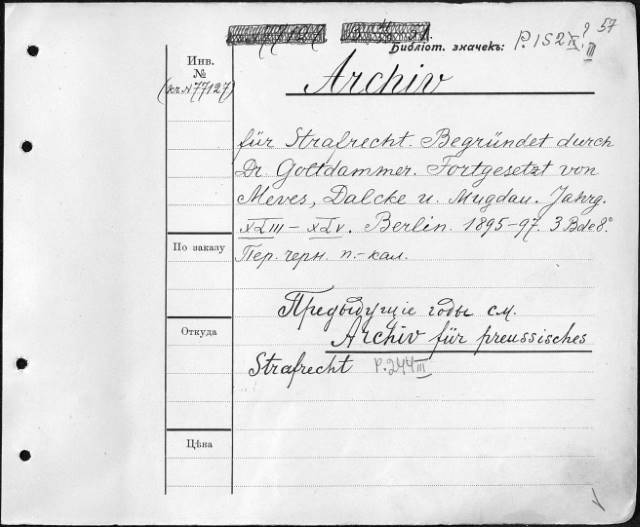 57
Библіот. значекъ: P.152
Инв.
№
(кч. N 77127)
Archiv
für Strafrecht. Begründet durch
Dr. Goltdammer. Fortgesetzt von
Meves, Dalcke u. Mugdau. Jahrg.
XLIII – XLV. Berlin. 1895-97. 3 Bde 8°
По заказу
Пер. черн. п.-кал.
Предыдущіе годы см.
Откуда
Archiv für preussisches
Strafrecht P.244 III
Цѣна